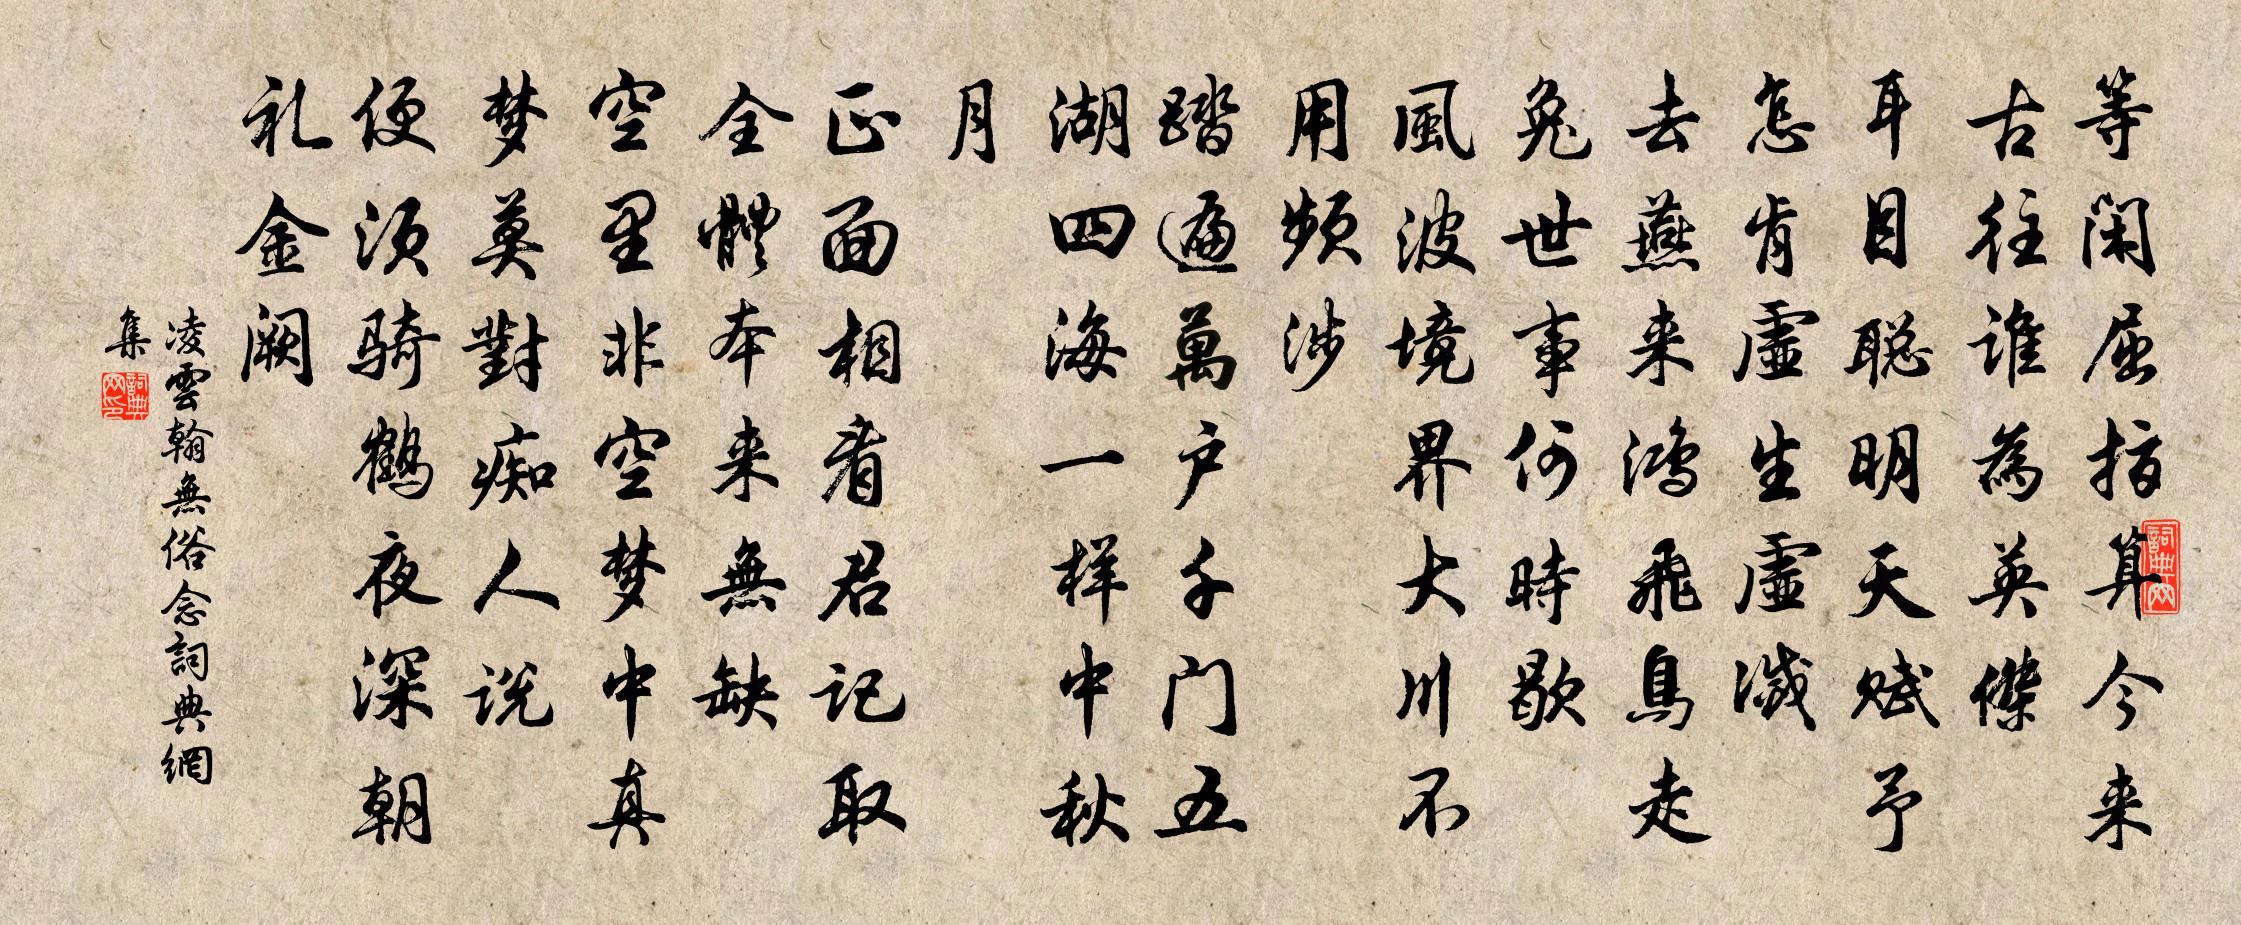 等闲屈指算今来
古往谁為英傑
耳目聪明天赋予
怎肯虚生虚滅
去燕来鸿飛鳥走
兔世事何時歇
風波境界大川不
用频涉
踏遍萬户千门五
湖四海一样中秋
月
正面相看君记取
全體本来無缺
空里非空梦中真
梦莫對痴人说
便须骑鹤夜深朝
礼金阙
凌雲翰無俗念詞典網
集
詞典网
詞典网印